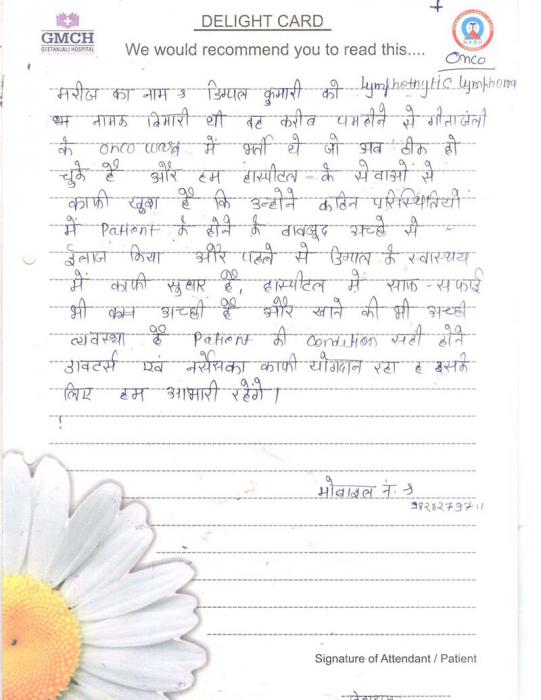 GMCH
GEETANJALI HOSPITAL
DELIGHT CARD
We would recommend you to read this....
NABH
Onco
मरीज का नाम डिम्पल कुमारी को Lymphothytic Lymphoma
नामक बिमारी थी वह करीब महीने से गीतांजली
के onco ward में भर्ती थे जो अब ठीक हो
चुके है और हम हास्पीटल के सेवाओं से
काफी खुश है कि उन्होने कठिन परिस्थितियों
में Patient के होने के बावजूद अच्छे से
ईलाज किया और पहले से डिम्पल के स्वास्थय
में काफी सुधार है, हास्पीटल में साफ-सफाई
भी अच्छी है और खाने की भी अच्छी
व्यवस्था है Patient की condition सही होने
डाक्टर्स एवं नर्सेसका काफी योगदान रहा है इसके
लिए हम आभारी रहेंगे।
मोबाइल नं.
Signature of Attendant / Patient